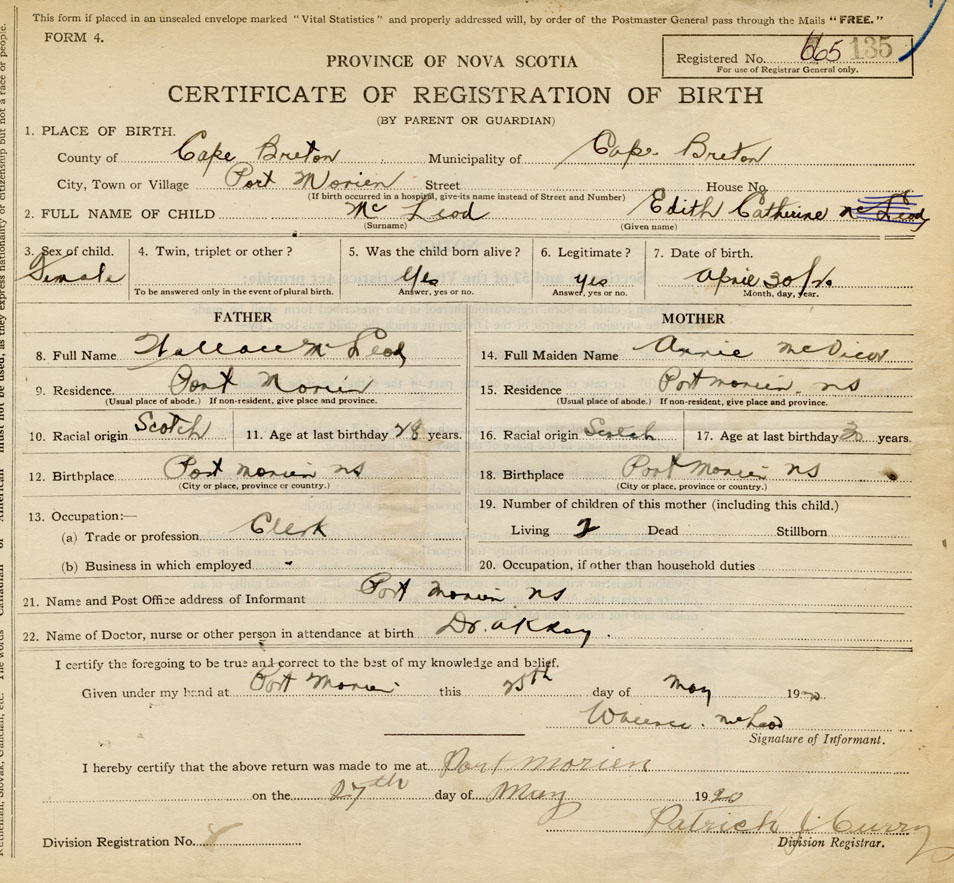 This form if placed in an unsealed envelope marked "Vital Statistics" and properly addressed will, by order of the Postmaster General pass through the Mails "FREE."
FORM 4.
Registered No. 665 135
For use of Registrar General only.
PROVINCE OF NOVA SCOTIA
CERTIFICATE OF REGISTRATION OF BIRTH
(BY PARENT OR GUARDIAN)
1. PLACE OF BIRTH.
County of Cape Breton Municipality of Cape Breton
City, Town or Village Port Morien Street House No.
(If birth occurred in a hospital, give its name instead of Street and Number)
2. FULL NAME OF CHILD Mc Leod Edith Catherine Mc Leod
(Surname) (Given name)
3. Sex of child. 4. Twin, triplet or other? 5. Was the child born alive? 6. Legitimate? 7. Date of birth.
Female Yes yes April 30/20
To be answered only in the event of plural birth. Answer, yes or no. Answer, yes or no. Month, day, year.
FATHER MOTHER
8. Full Name Wallace Mc Leod 14. Full Maiden Name Annie
9. Residence. Port Morien 15. Residence Port morien. ns
(Usual place of abode.) If non-resident, give place and province. (Usual place of abode.) If non-resident, give place and province.
10. Racial origin Scotch 11. Age at last birthday 28 years. 16. Racial origin Scotch 17. Age at last birthday 30 years.
12. Birthplace Port morien ns 18. Birthplace Port Morien ns
(City or place, province or country.) (City or place, province or country.)
13. Occupation:— 19. Number of children of this mother (including this child.)
(a) Trade or profession Clerk Living 2 Dead Stillborn
(b) Business in which employed - 20. Occupation, if other than household duties
21. Name and Post Office address of Informant Port morien ns
22. Name of Doctor, nurse or other person in attendance at birth Dr.
I certify the foregoing to be true and correct to the best of my knowledge and belief.
Given under my hand at Port Morien this 25th day of may 1920
Wallace. McLeod
Signature of Informant.
I hereby certify that the above return was made to me at Port Morien
on the 27th day of May 1920
Patrick J Curry
Division Registration No. Division Registrar.